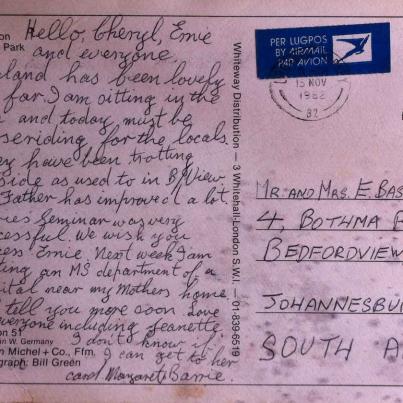 on
Park
Hello, Cheryl, Ernie
and everyone.
land has been lovely
far. I am sitting in the
and today must be
seriding for the locals.
ey have been trotting
side as used to in B/View
Father has improved a lot
ries Seminar was very
cessful. We wish you
cess Ernie. Next week I am
ting an MS department of a
ital near my Mothers home
tell you more soon. Love
everyone including Jeanette.
I don't know if
I can get to her
card. Margaret & Barrie.
on 51
in W. Germany
n Michel + Co., Ffm.
graph: Bill Green
Whiteway Distribution — 3 Whitehall-London S.W.I. — 01-839-6519
PER LUGPOS
BY AIRMAIL
PAR AVION
15 NOV
1982
MR. AND MRS. E. BAS
4, BOTHMA
BEDFORDVIEW
JOHANNESBU
SOUTH A